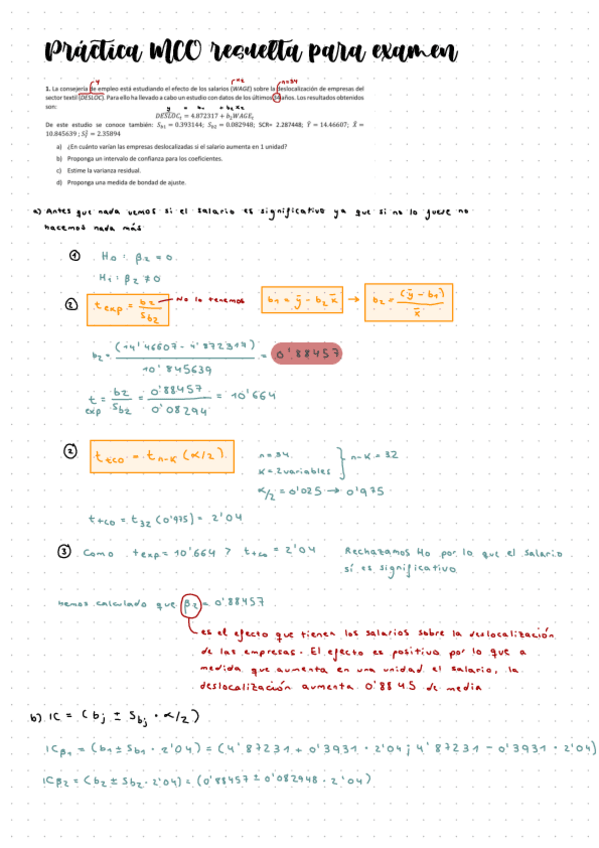 Práctica MCO resuelta para examen
y k=2 n=34
1. La consejería de empleo está estudiando el efecto de los salarios (WAGE) sobre la deslocalización de empresas del
sector textil (DESLOC). Para ello ha llevado a cabo un estudio con datos de los últimos 34 años. Los resultados obtenidos
son:
y = b1 + b2 x2
DESLOC_t = 4.872317 + b₂WAGE_t
De este estudio se conoce también: S_b1 = 0.393144; S_b2 = 0.082948; SCR= 2.287448; Ȳ = 14.46607; X̄ =
10.845639 ; S_Y² = 2.35894
a) ¿En cuánto varían las empresas deslocalizadas si el salario aumenta en 1 unidad?
b) Proponga un intervalo de confianza para los coeficientes.
c) Estime la varianza residual.
d) Proponga una medida de bondad de ajuste.
a) Antes que nada vemos si el salario es significativo ya que si no lo fuere no
hacemos nada más.
① H₀: β₂ = 0
H₁: β₂ ≠ 0
② t exp = b₂/S_b2 No lo tenemos b₁ = ȳ - b₂ x̄ → b₂ = (ȳ - b₁)/x̄
b₂ = (14'46607 - 4'872317)/10'845639 = 0'88457
t exp = b₂/S_b2 = 0'88457/0'08294 = 10'664
② t tco = t n-k (α/2) n = 34 n-k = 32
k = 2 variables
α/2 = 0'025 → 0'975
t tco = t 32 (0'975) = 2'04
③ Como t exp = 10'664 > t tco = 2'04 Rechazamos H₀ por lo que el salario
sí es significativo
Hemos calculado que β₂ = 0'88457
es el efecto que tienen los salarios sobre la deslocalización
de las empresas. El efecto es positivo por lo que a
medida que aumenta en una unidad el salario, la
deslocalización aumenta 0'8845 de media
b) IC = (bj ± S_bj · α/2)
IC β₁ = (b₁ ± S_b1 · 2'04) = (4'87231 + 0'3931 · 2'04 ; 4'87231 - 0'3931 · 2'04)
IC β₂ = (b₂ ± S_b2 · 2'04) = (0'88457 ± 0'082948 · 2'04)